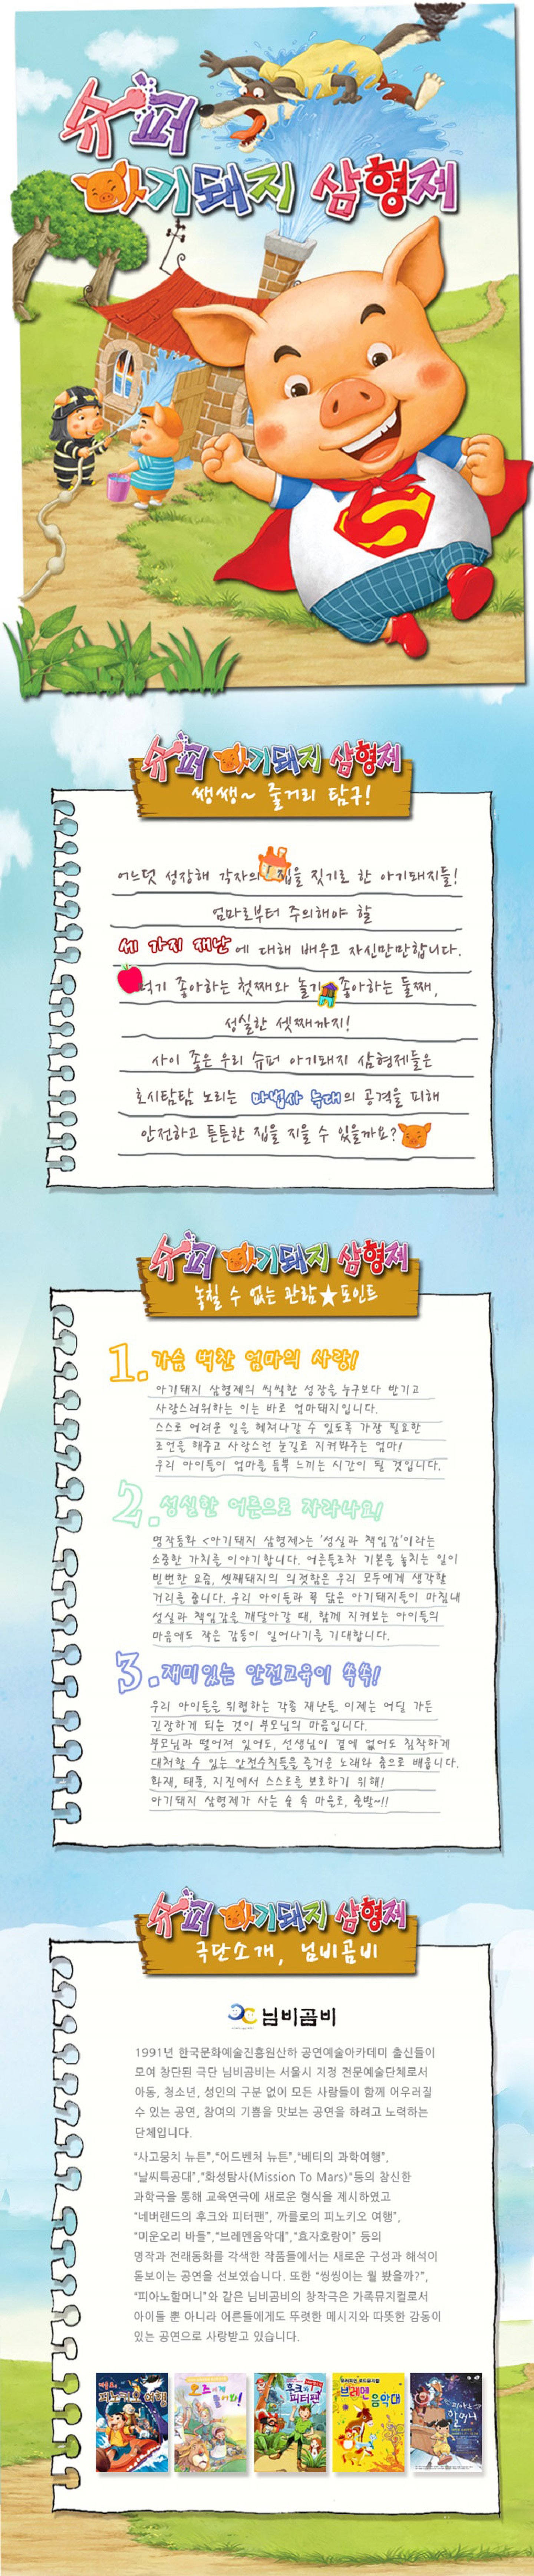 슈퍼
아기돼지 삼형제
슈퍼 아기돼지 삼형제
쌩쌩~ 줄거리 탐구!
어느덧 성장해 각자의 집을 짓기로 한 아기돼지들!
엄마로부터 주의해야 할
세 가지 재난에 대해 배우고 자신만만합니다.
먹기 좋아하는 첫째와 놀기 좋아하는 둘째,
성실한 셋째까지!
사이 좋은 우리 슈퍼 아기돼지 삼형제들은
호시탐탐 노리는 마법사 늑대의 공격을 피해
안전하고 튼튼한 집을 지을 수 있을까요?
슈퍼 아기돼지 삼형제
놓칠 수 없는 관람★포인트
1. 가슴 벅찬 엄마의 사랑!
아기돼지 삼형제의 씩씩한 성장을 누구보다 반기고
사랑스러워하는 이는 바로 엄마돼지입니다.
스스로 어려운 일을 헤쳐나갈 수 있도록 가장 필요한
조언을 해주고 사랑스런 눈길로 지켜봐주는 엄마!
우리 아이들이 엄마를 듬뿍 느끼는 시간이 될 것입니다.
2. 성실한 어른으로 자라나요!
명작동화 <아기돼지 삼형제>는 '성실과 책임감'이라는
소중한 가치를 이야기합니다. 어른들조차 기본을 놓치는 일이
빈번한 요즘, 셋째돼지의 의젓함은 우리 모두에게 생각할
거리를 줍니다. 우리 아이들과 꼭 닮은 아기돼지들이 마침내
성실과 책임감을 깨달아갈 때, 함께 지켜보는 아이들의
마음에도 작은 감동이 일어나기를 기대합니다.
3. 재미있는 안전교육이 쏙쏙!
우리 아이들을 위협하는 각종 재난들 이제는 어딜 가든
긴장하게 되는 것이 부모님의 마음입니다.
부모님과 떨어져 있어도, 선생님이 곁에 없어도 침착하게
대처할 수 있는 안전수칙들을 즐거운 노래와 춤으로 배웁니다.
화재, 태풍, 지진에서 스스로를 보호하기 위해!
아기돼지 삼형제가 사는 숲 속 마을로, 출발~!!
슈퍼 아기돼지 삼형제
극단소개, 님비곰비
님비곰비
1991년 한국문화예술진흥원산하 공연예술아카데미 출신들이
모여 창단된 극단 님비곰비는 서울시 지정 전문예술단체로서
아동, 청소년, 성인의 구분 없이 모든 사람들이 함께 어우러질
수 있는 공연, 참여의 기쁨을 맛보는 공연을 하려고 노력하는
단체입니다.
"사고뭉치 뉴튼","어드벤처 뉴튼","베티의 과학여행",
"날씨특공대","화성탐사(Mission To Mars)"등의 참신한
과학극을 통해 교육연극에 새로운 형식을 제시하였고
"네버랜드의 후크와 피터팬", 까를로의 피노키오 여행",
"미운오리 바들","브레멘음악대","효자호랑이" 등의
명작과 전래동화를 각색한 작품들에서는 새로운 구성과 해석이
돋보이는 공연을 선보였습니다. 또한 "씽씽이는 뭘 봤을까?",
"피아노할머니"와 같은 님비곰비의 창작극은 가족뮤지컬로서
아이들 뿐 아니라 어른들에게도 뚜렷한 메시지와 따뜻한 감동이
있는 공연으로 사랑받고 있습니다.
피노키오 여행
오즈에게
후크와
피터팬
브레멘
음악대
피아노
할머니